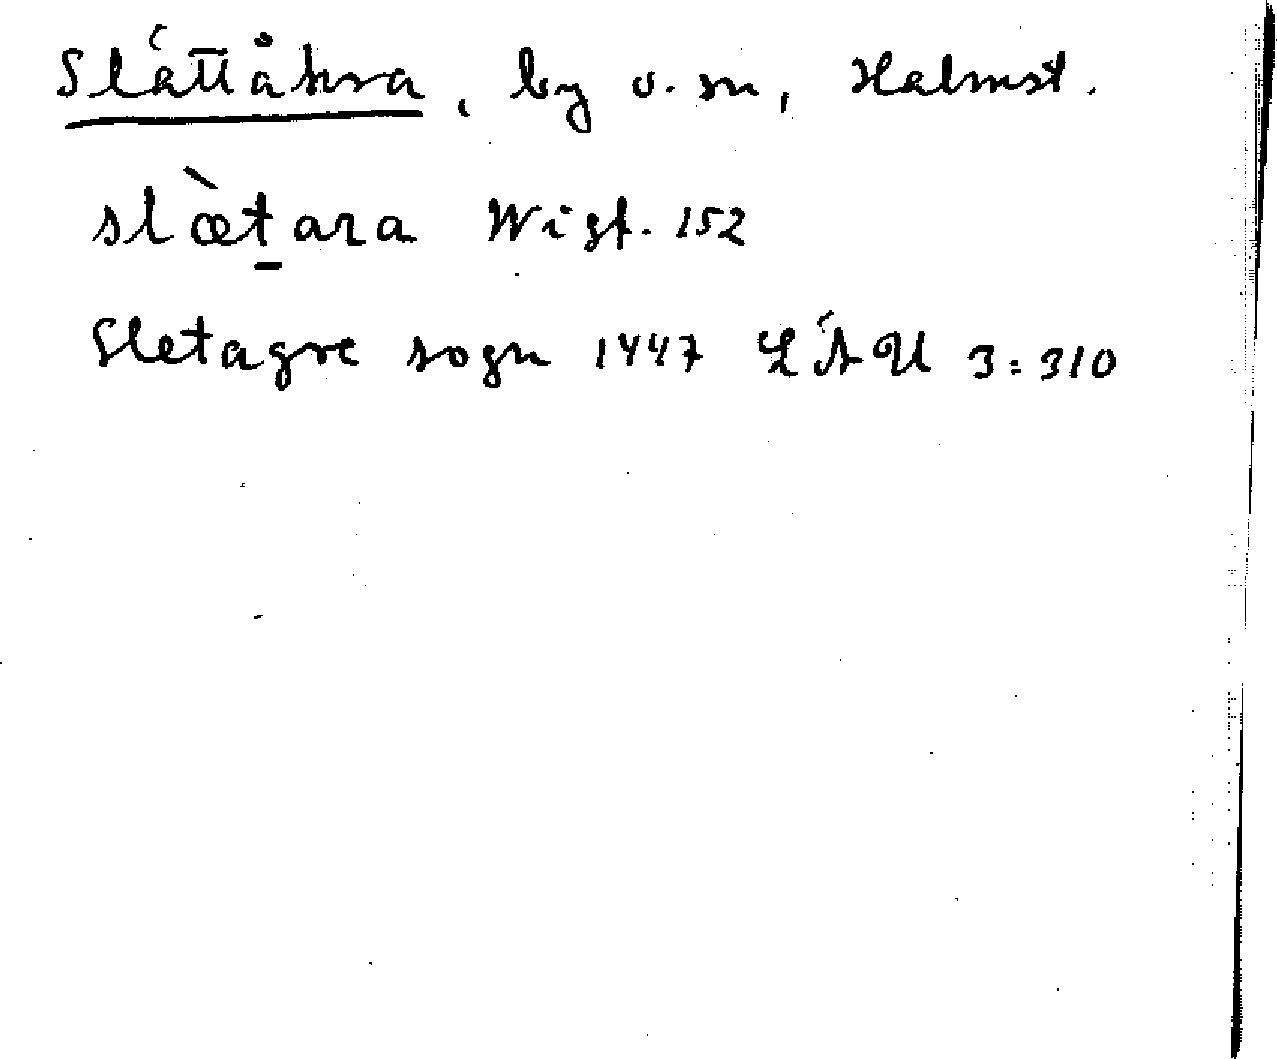 Slättåkra, by o. sn, Halmst.
slæ̀t̠ara Wigf. 152
Sletagre sogn 1447 LÄU 3:310